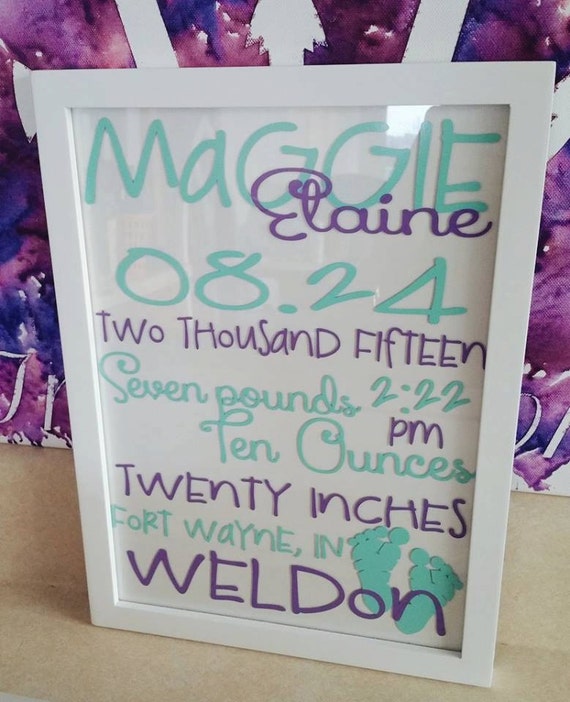 MaGGIE
Elaine
08.24
TWO THOUSAND FIFTEEN
Seven pounds 2:22
pm
Ten Ounces
TWENTY INCHES
FORT WAYNE, IN
WELDon